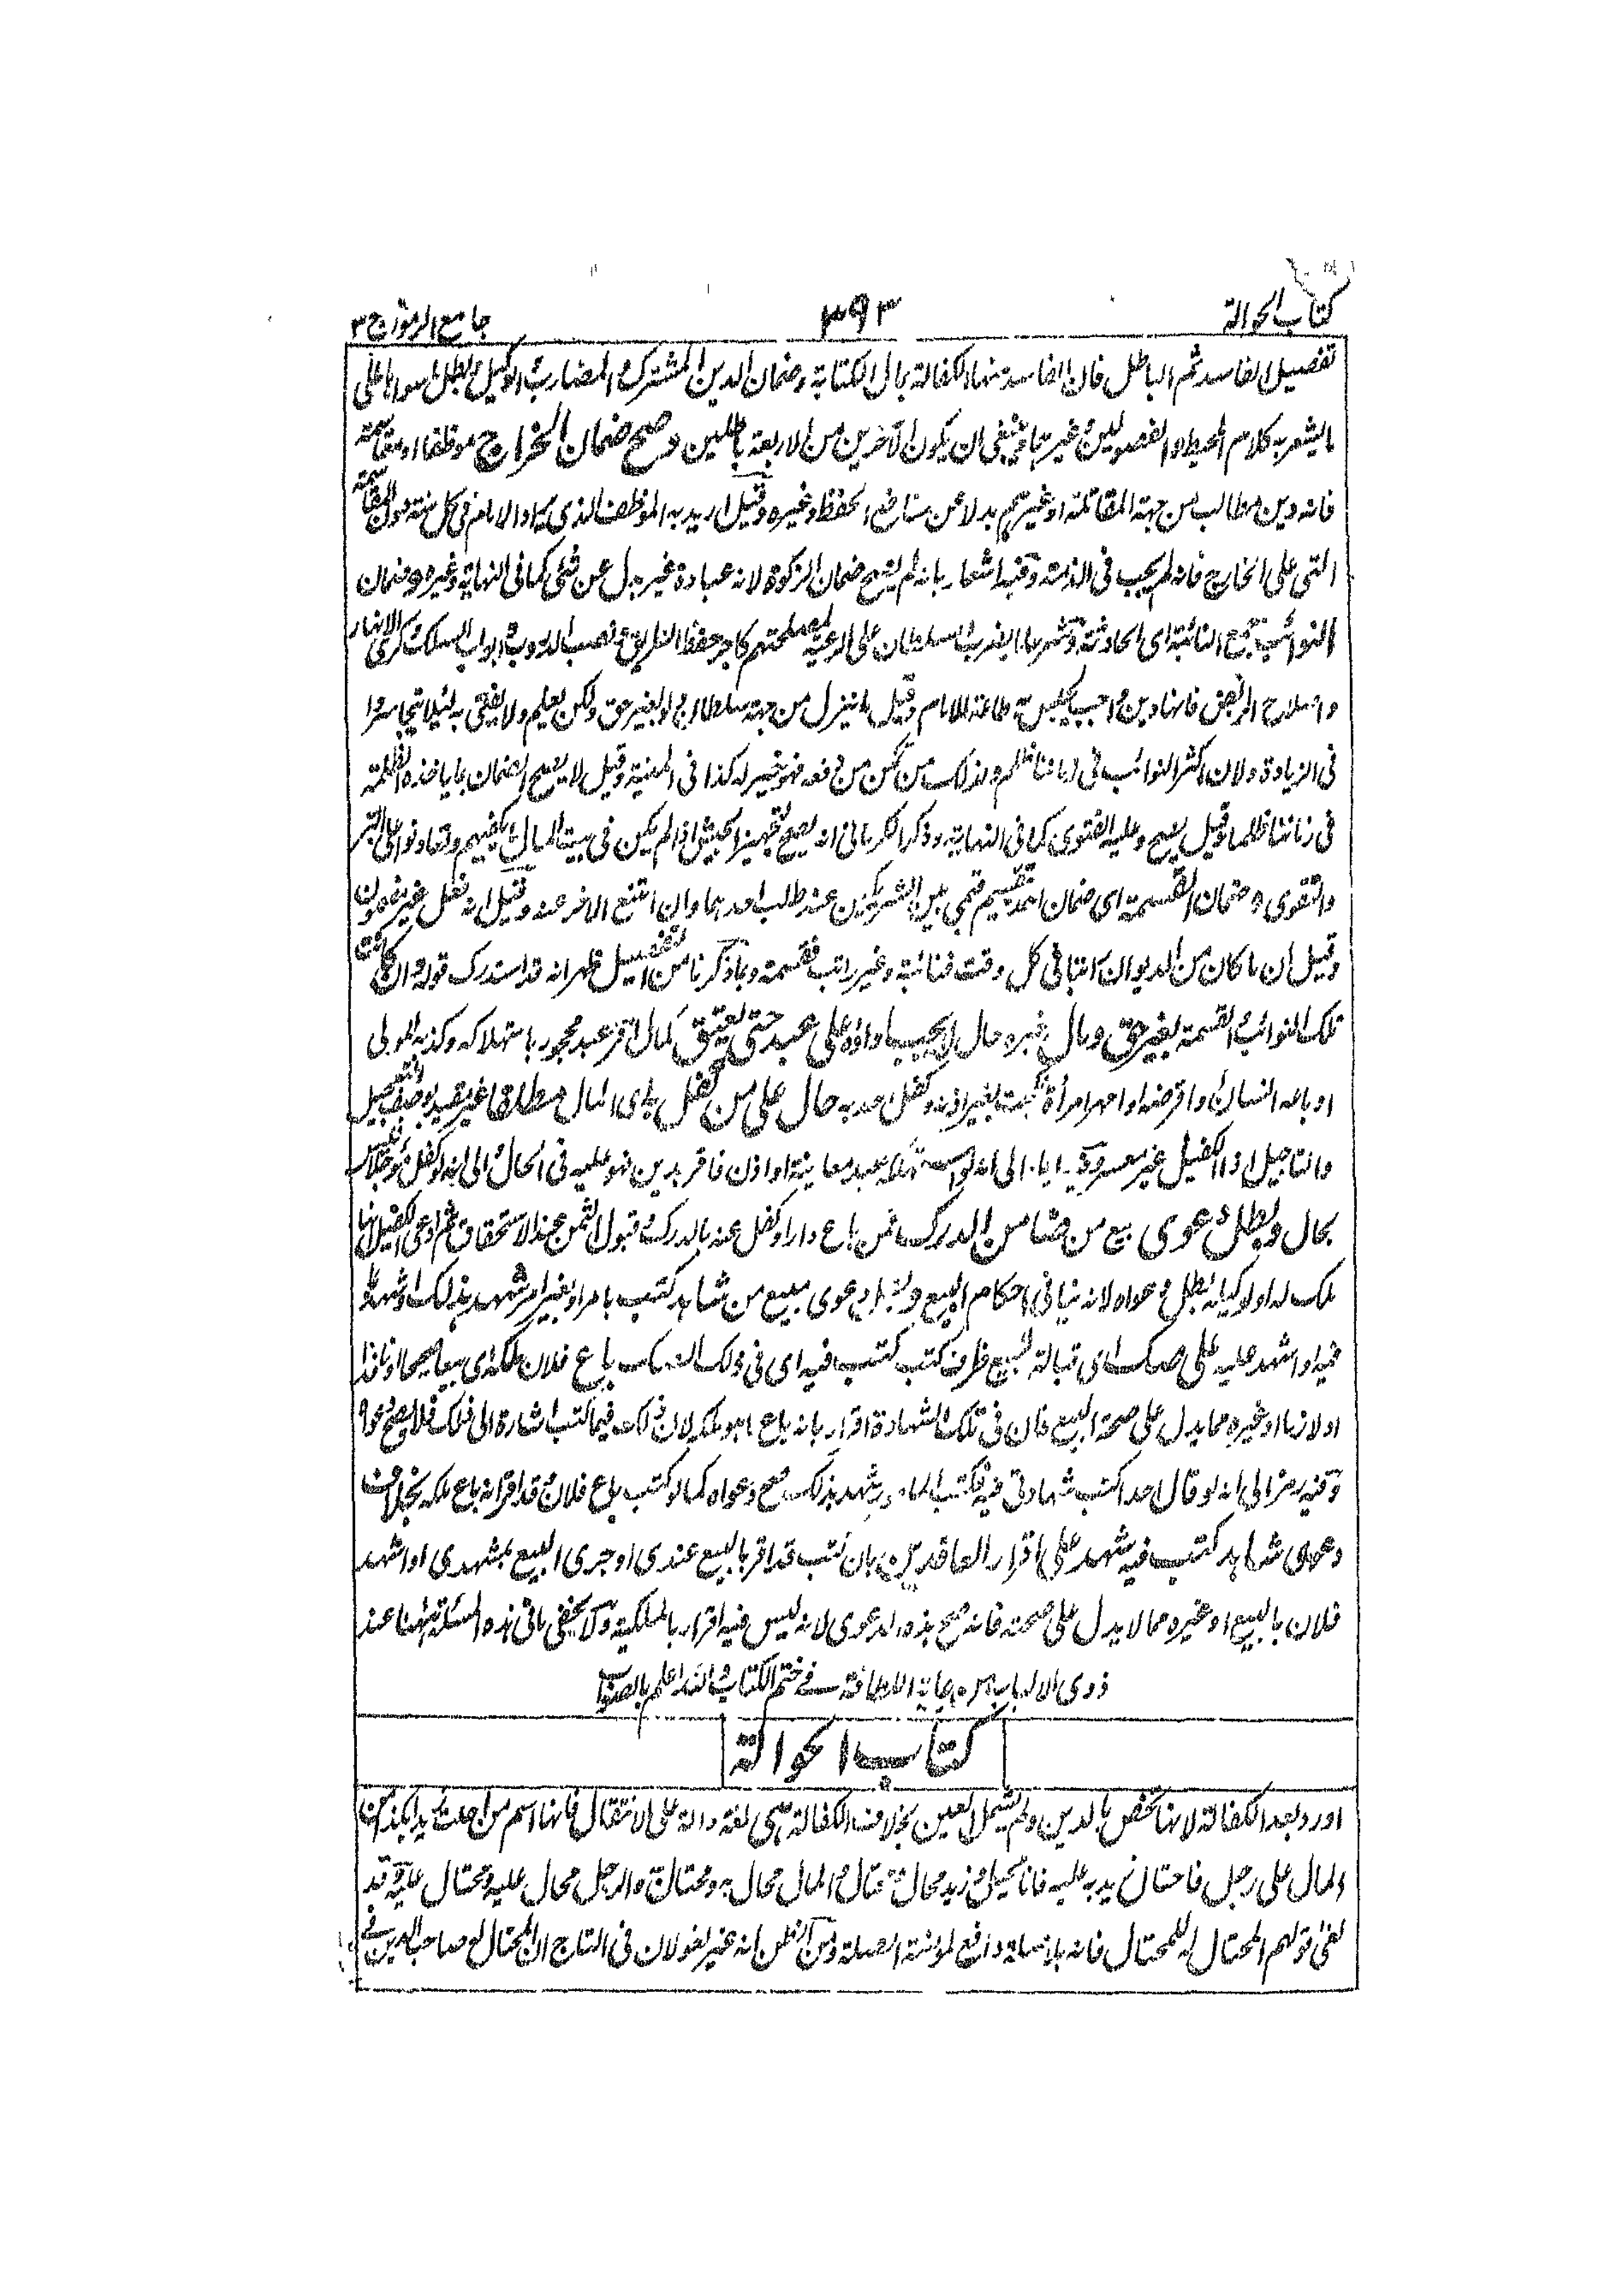 كتاب الحوالة ٣٩٣ جامع الرموز ج ٣
تفصيل الفاسد ثم الباطل فان الفاسد منها الكفالة بمال الكتابة وضمان الدين المشترك والمضارب والوكيل والباطل سواها على
ما يشعر به كلام المحيط والفصولين وغيرهما وينبغى ان يكون الآخرين من الاربعة باطلين وصح ضمان الخراج موظفا او مقاسمة
فانه دين مطالب من جهة المقاتلة او غيرهم بدلا عن منافع الحفظ وغيره وقيل اريد به الموظف الذى يراه الامام فى كل سنة دون المقاسمة
التى على الخارج فانه لم يجب فى الذمة وفيه اشعار بانه لم يصح ضمان الزكوة لانه عبادة غير بدل عن شئ كما فى النهاية وغيره وضمان
النوائب جمع النائبة اى الحادثة وشرعا ما يضرب السلطان على الرعية لمصلحتهم كاجر حفظ الطريق ونصب الدروب وابواب السكك وكرى الانهار
واصلاح الربض فانها دين واجب طاعة للامام وقيل ما ينزل من جهة سلطان ولو بغير حق ولكن يعلم ولا يفتى به لئلا يتجاسروا
فى الزيادة ولان اكثر النوائب فى زماننا ظلم ولذلك من تمكن من دفعه فهو خير له كذا فى المنية وقيل لا يصح الضمان بما ياخذه الظلمة
فى زماننا ظلما وقيل يصح وعليه الفتوى كما فى النهاية وذكر الكرمانى انه يصح تجهيز الجيش اذا لم يكن فى بيت المال ما يكفيهم وتعاونوا على البر
والتقوى وضمان القسمة اى ضمان احد بين الشريكين عند طلب احدهما وان امتنع الاخر عنه وقيل
وقيل ان ما كان من الديوان راتبا فى كل وقت فنائبة وغير راتب فقسمة وبما ذكرنا من التفصيل ظهر انه قد استدرك قوله وان كانت
تلك النوائب والقسمة بغير حق ومال غير حال لا يجب اداؤه على عبد حتى يعتق كمال اقر عبد محجور باستهلاكه وكذبه المولى
او باعه انسان او اقرضه او امهر امرأة نكحت بغير اذنه وكفل احد به حال على من كفل به اى المال مطلقا غير مقيد بوصف التعجيل
والتاجيل اذ الكفيل غير معسر وفيه ايماء الى انه لو استهلك عبد معاينة او اذن فاقر بدين فهو عليه فى الحال والى انه لو كفل مؤجلا ليس
بحال وبطل دعوى بيع من ضامن الدرك فمن باع دارا وكفل عنه بالدرك وقبول الثمن عند الاستحقاق ثم ادعى الكفيل انها
ملك له او لوكيله بطل دعواه لانه ينافى احكام البيع وبطل دعوى مبيع من شاهد كتب بامر او بغير امر شهد بذلك او شهد
فيه او اشهد عليه على صك اى قبالة لمبيع ظرف كتب كتب فيه اى فى ذلك الصك باع فلان ملكه اى بيعا صحيحا او نافذا
او لازما او غيره مما يدل على صحة البيع فان فى تلك الشهادة اقرار بانه باع ما هو ملكه لان ذلك فيما كتب اشارة الى ذلك فلا يصح دعواه
وفيه رمز الى انه لو قال احد اكتب شهادتى فيه فكتب شهد بذلك صح دعواه كما لو كتب باع فلان وقد اقر انه باع ملكه بخلاف
دعوى شاهد كتب فيه شهد على اقرار العاقدين بان كتب قد اقر بالبيع عندى او جرى البيع بمشهدى او اشهد
فلان بالبيع او غيره مما لا يدل على صحته فانه صح هذه الدعوى لانه ليس فيه اقرار بالملكية ولا يخفى ما فى هذه المسئلة ههنا عند
ذوى الالباب من رعاية اللطافة فى ختم الكتاب والله اعلم بالصواب
كتاب الحوالة
اورد بعد الكفالة لانها تخص بالدين ولم تشمل العين بخلاف الكفالة وهى لغة دالة على الانتقال فانها اسم من احلت زيدا بكذا من
المال على رجل فاحتال زيد به عليه فانا محيل وزيد محال ومحتال والمال محال به ومحتال به والرجل محال عليه ومحتال عليه وقد
لغى قولهم المحتال له للمحتال فانه دافع لمؤنة الصلة ومن الظن انه غير لغو لان فى التاج ان المحتال له صاحب الدين فى